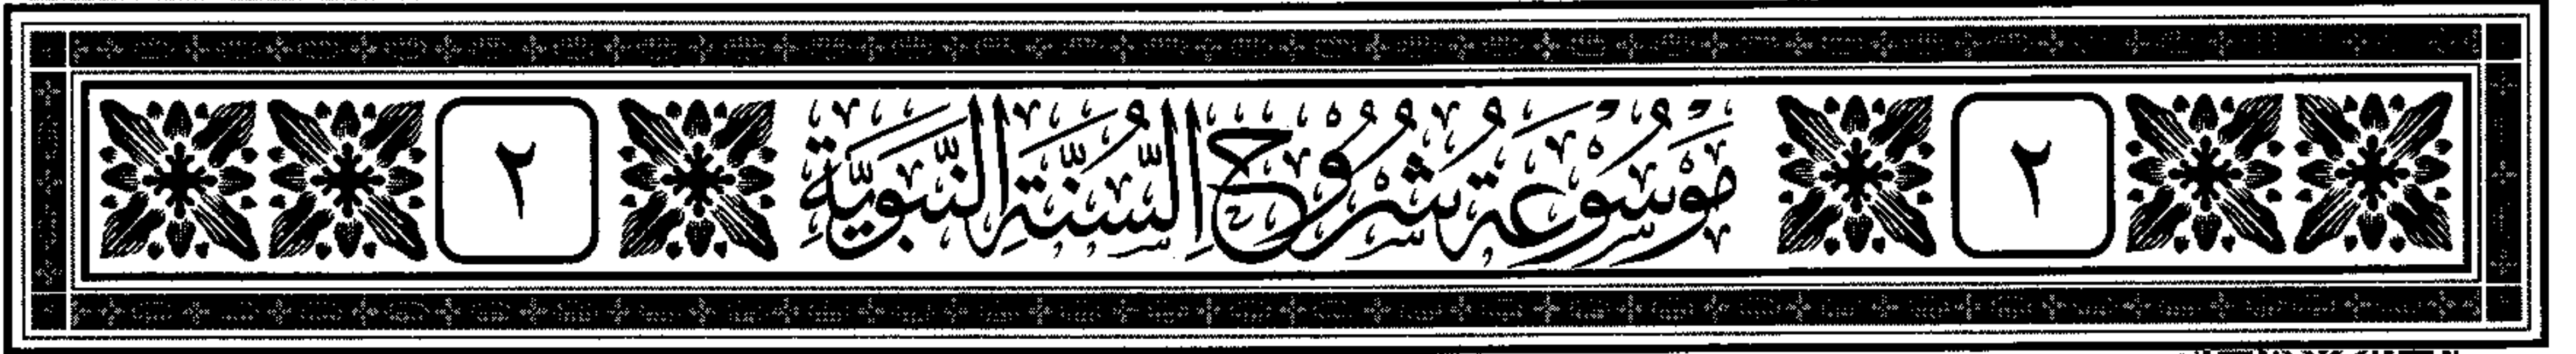 ٢ موسوعة شروح السنة النبوية ٢